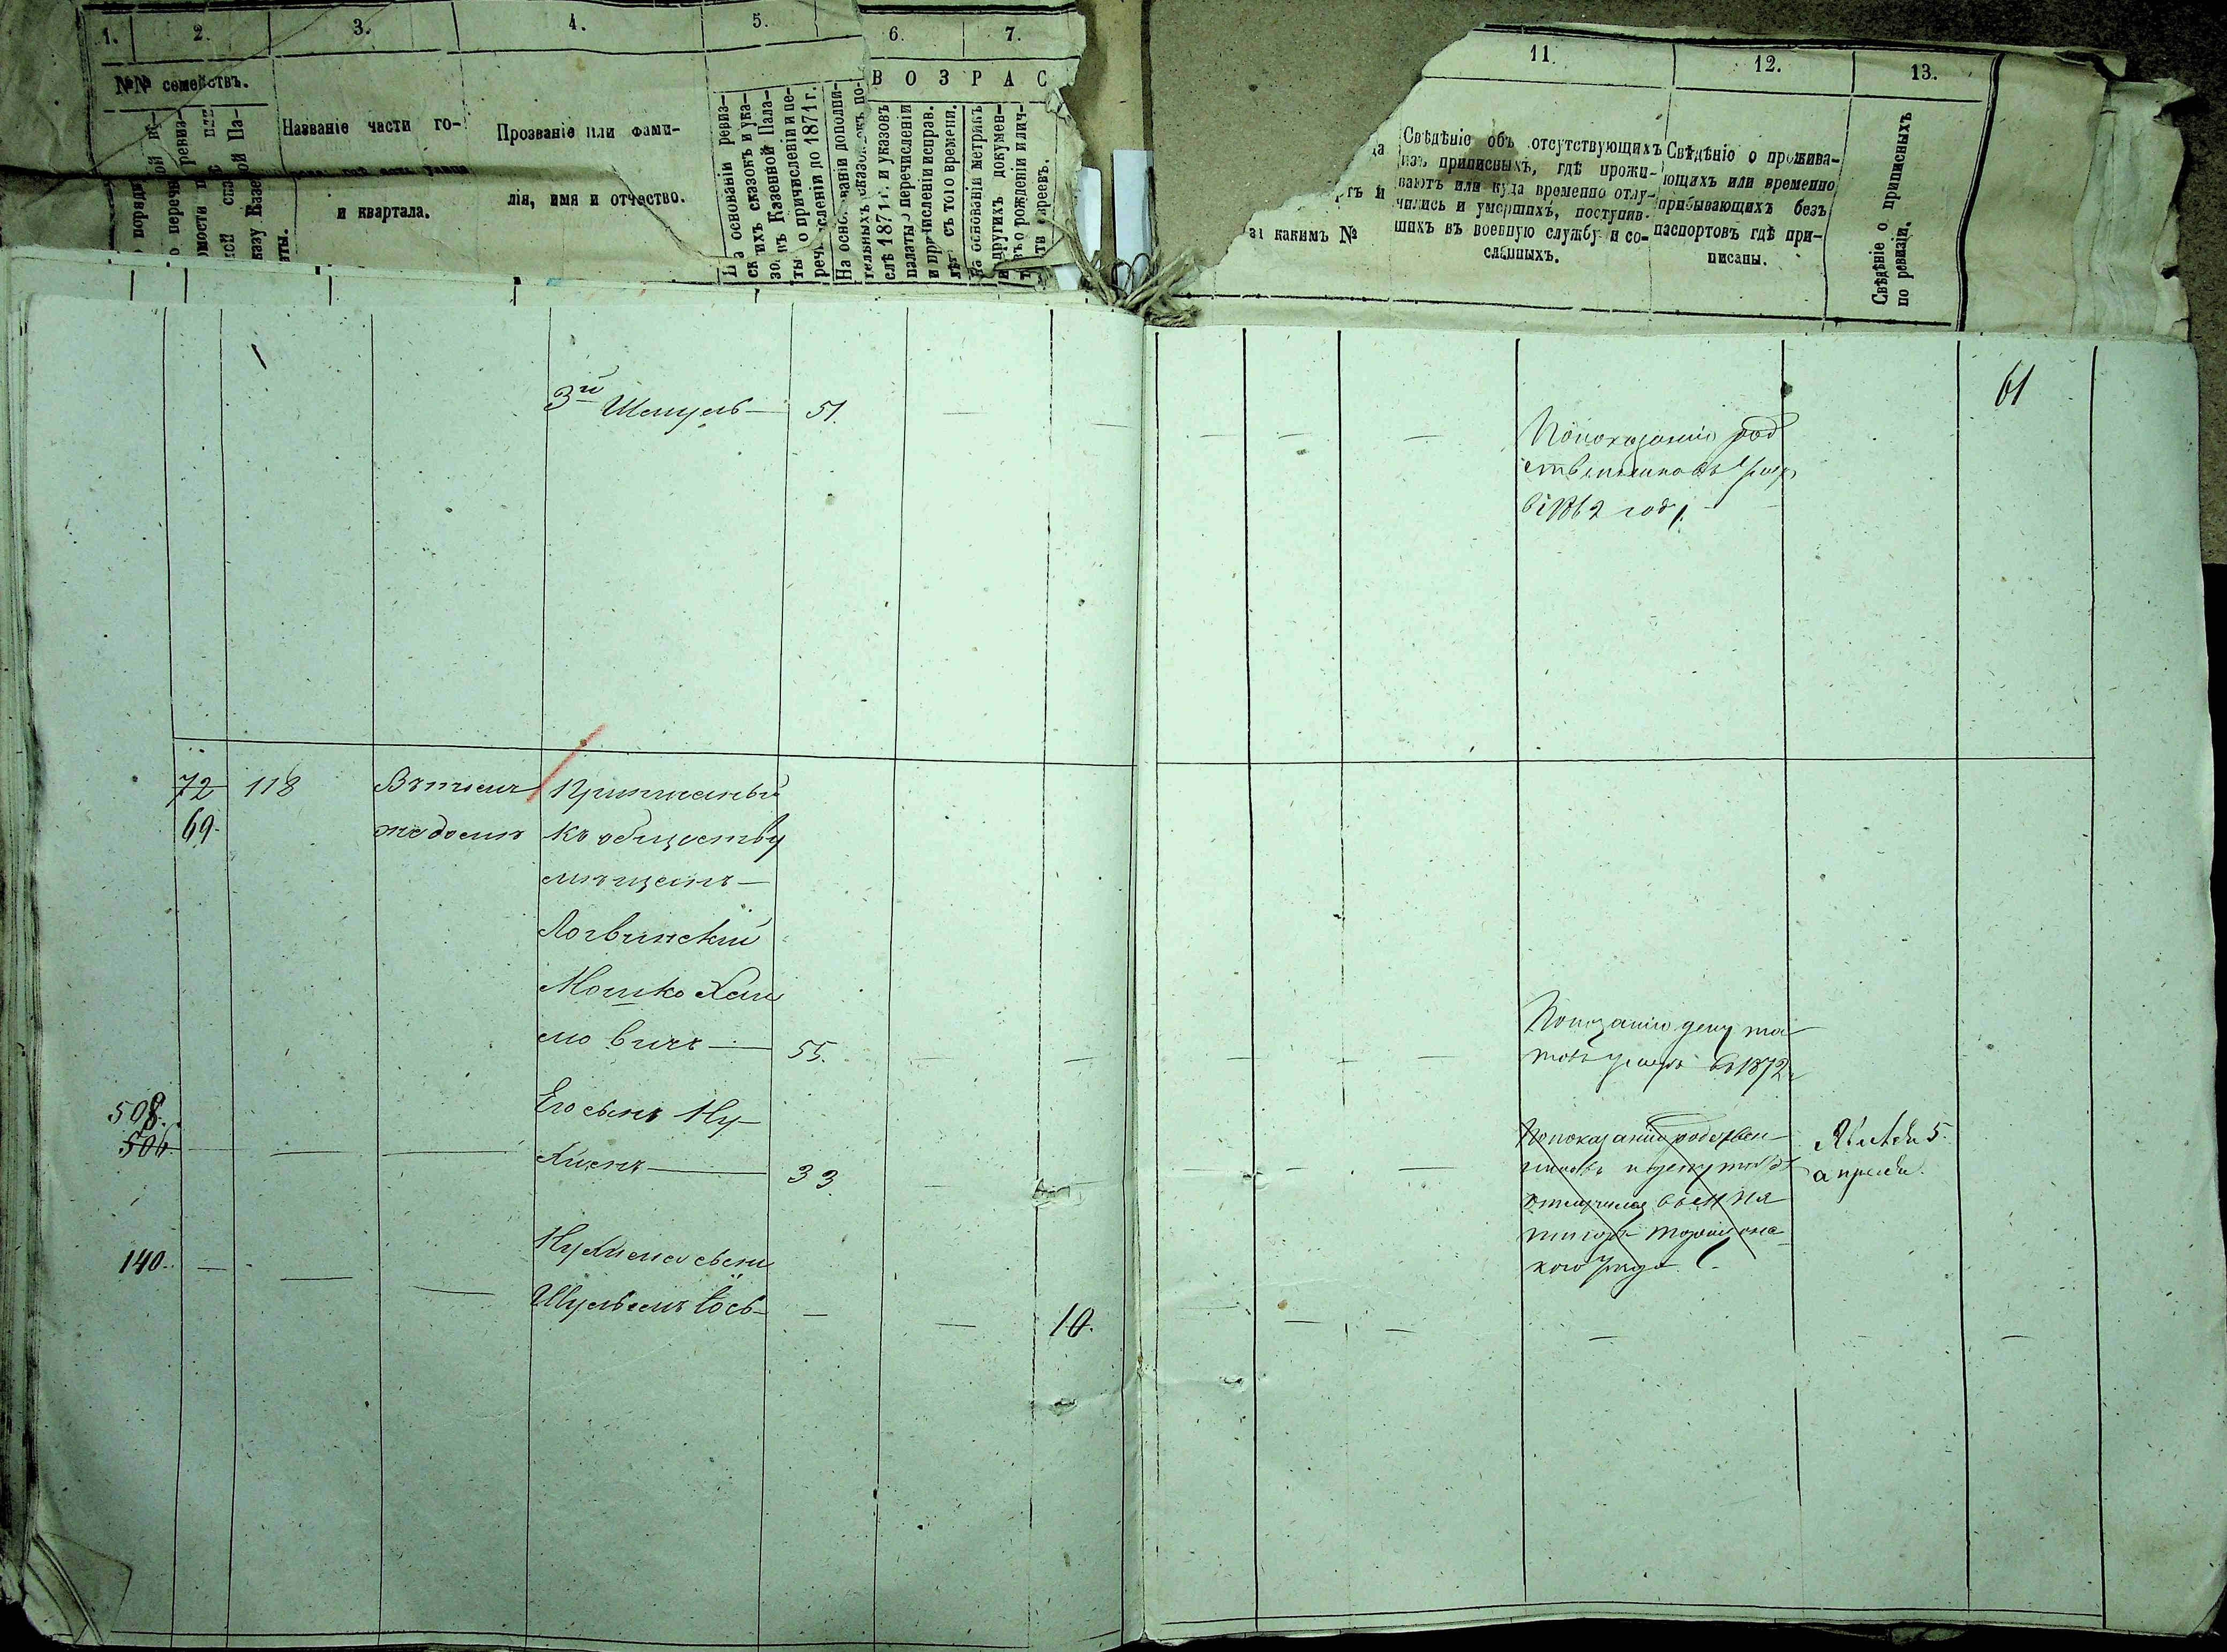 1.
2.
3.
4.
5.
6.
7.
11.
12.
13.
№№ семействъ.
Названіе части го-
и квартала.
Прозваніе или фами-
лія, имя и отчество.
ВОЗРАС
На основаніи ревиз-
скихъ сказокъ и ука-
зовъ Казенной Пала-
ты о причисленіи и пе-
речисленіи по 1871 г.
На основаніи дополни-
тельныхъ сказокъ по-
слѣ 1871 г. и указовъ
палаты о перечисленіи
и причисленіи исправ.
лѣт съ того времени.
На основаніи метрикъ
и другихъ докумен-
товъ о рожденіи и лич-
евреевъ.
каким №
Свѣдѣніе объ отсутствующихъ
изъ приписныхъ, гдѣ прожи-
ваютъ или куда временно отлу-
чились и умершихъ, поступив-
шихъ въ военную службу и со-
сланныхъ.
Свѣдѣніе о прожива-
ющихъ или временно
прибывающихъ безъ
паспортовъ гдѣ при-
писаны.
Свѣдѣніе о приписныхъ
по ревизіи.
61
3й Шмуль 51.
По показанію род
ственниковъ умеръ
въ 1862 году.
72 118 Въ томъ
69. же домѣ
Приписаный
къ обществу
мѣщанъ
Логвинскій
Мошко Хаи
мовичъ 55.
По показанію депута
товъ умеръ въ 1872 г
508.
506.
Его сынъ Ну
химъ 33
По показанію родствен
никовъ и депутатовъ
отлучился
кого уезда
Явился 5
апреля.
140.
Нухима сынъ
Шулимъ Іось 10.